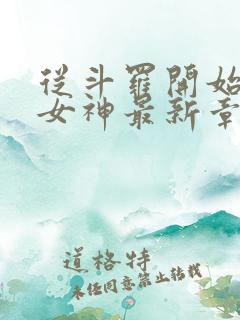 從斗羅開始
女神最新章
道格特
未任同意禁止转载